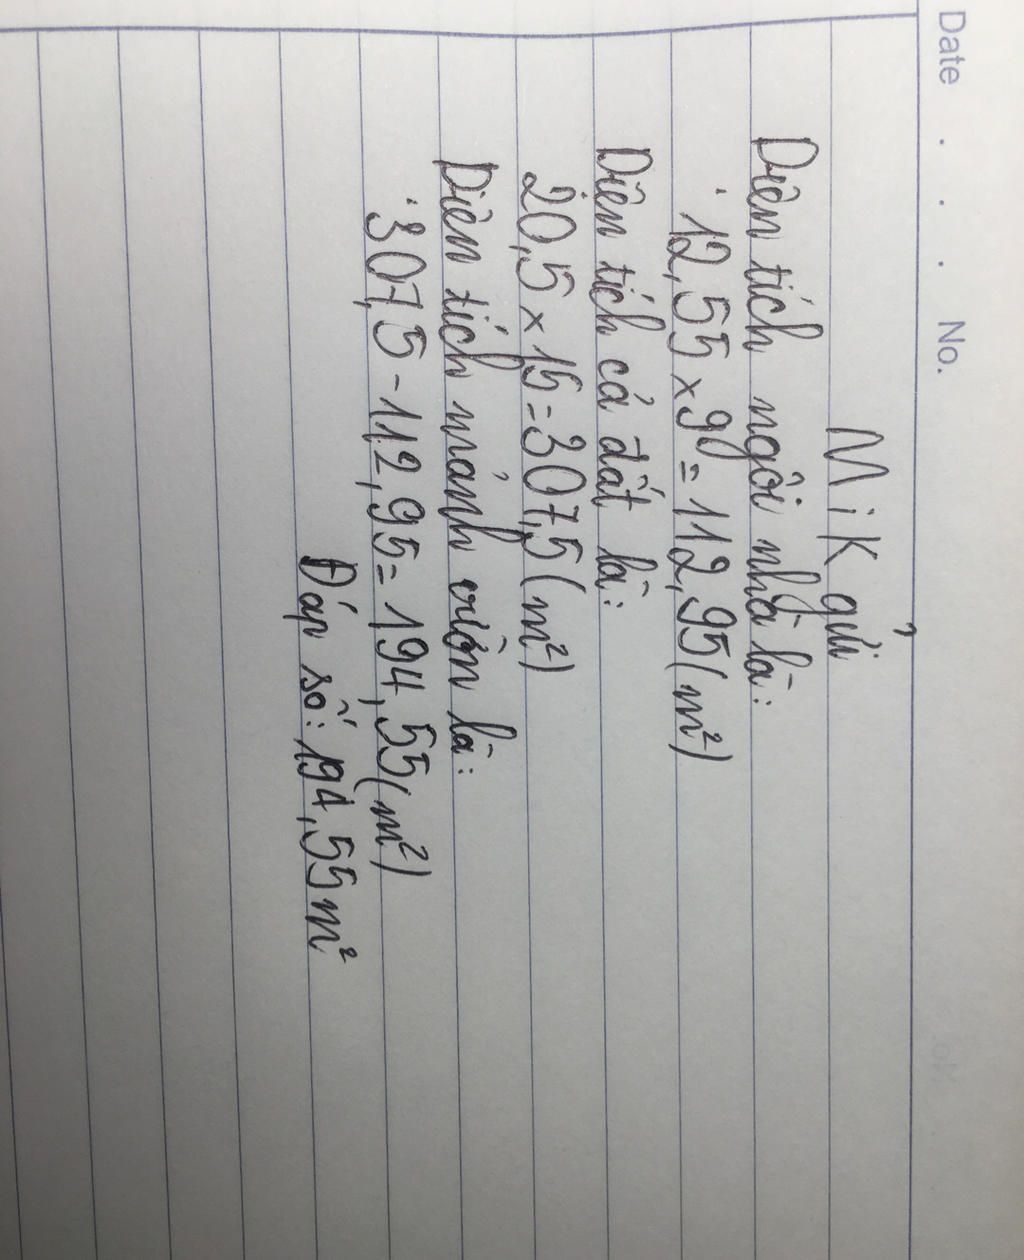 Date . . . No.
Mik gửi
Diện tích ngôi nhà là:
12,55 x 9 = 112,95 (m²)
Diện tích cả đất là:
20,5 x 15 = 307,5 (m²)
Diện tích mảnh vườn là:
307,5 - 112,95 = 194,55 (m²)
Đáp số: 194,55 m²